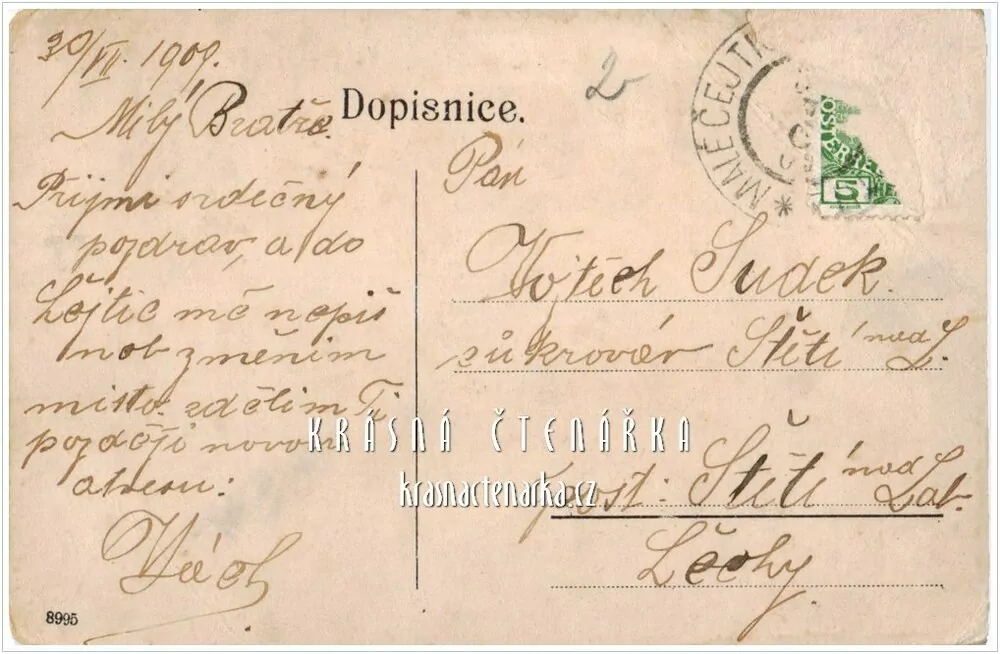 30/VII. 1909.
Milý Bratře.
Dopisnice.
2
MALEČEJTI
5
Přijmi srdečný
pozdrav, a do
Lejtic mě nepiš
neb změním
místo. sdělím Ti
pozdějí novou
adresu:
Pán
Vojtěch Sudek.
cůkrovár Štětí nad L.
post: Štětí nad Lab.
Čechy
KRÁSNÁ ČTENÁŘKA
krasnactenarka.cz
8995